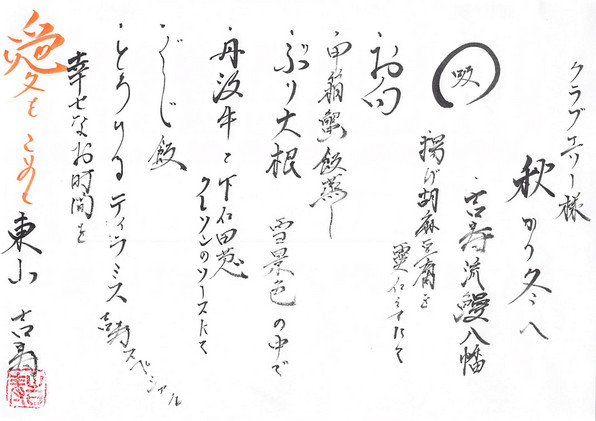 クラブエリー様
秋から冬へ
・吉寿流鰻八幡
揚げ胡麻豆腐を
仕立てで
・お向
・甲箱蟹飯蒸し
・ぶり大根 雪景色の中で
・丹波牛と下仁田葱
クレソンのソースにて
・ぐじ飯
・とろける ティラミス 吉寿スペシャル
幸せなお時間を
愛をこめて 東山 吉寿